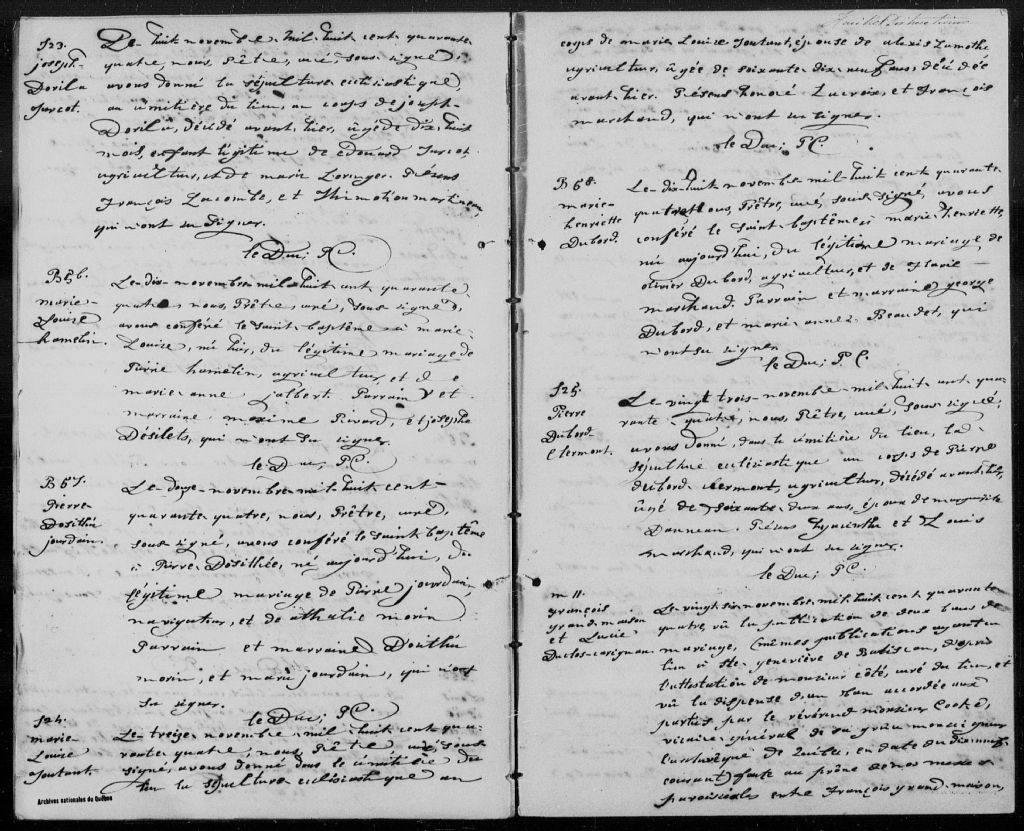 S23.
joseph-
Dorila
Turcot.
Le huit novembre mil-huit cent quarante
quatre, nous, Prêtre, curé, sous-signé,
avons donné la sépulture ecclésiastique,
au cimitière du lieu, au corps de joseph-
Dorila, décédé avant, hier, âgé de dix-huit
mois, enfant légitime de édouard Turcot,
agriculteur, et de marie Loranger. Présens
François Lacombe, et Thimothé martineau,
qui n'ont su signer.
le Duc; P.C.
B 66.
marie-
Louise
hamelin.
Le dix novembre mil-huit cent quarante
quatre, nous, Prêtre, curé, sous signé,
avons conféré le saint baptême à marie-
Louise, née hier, du légitime mariage de
Pierre hamelin, agriculteur, et de
marie anne jalbert Parrain et
marraine, maxime Rivard, et josephe
Désilets, qui n'ont su signer.
le Duc; P.C.
B 67.
Pierre
Dosithée
jourdain.
Le douze novembre mil-huit cent-
quarante quatre, nous, Prêtre, curé,
sous-signé, avons conféré le saint baptême
à Pierre-Dosithée, né aujourd'hui, du
légitime mariage de Pierre jourdain,
navigateur, et de athalie morin
Parrain et marraine Dosithé
morin, et marie jourdain, qui n'ont
su signer.
le Duc; P.C.
S24.
marie
Louise
Toutant.
Le treize novembre mil-huit cent qua-
rante quatre, nous, Prêtre, curé, sous
signé, avons donné dans le cimitière du
lieu la sépulture ecclésiastique au
Archives nationales du Québec
corps de marie Louise Toutant, épouse de alexis Lamothe
agriculteur, âgée de soixante-dix-neuf ans, décédée
avant-hier. Présens honoré Lacroix, et François
marchand, qui n'ont su signer.
le Duc; P.C.
B 68.
marie-
henriette
Dubord.
Le dix-huit novembre mil-huit cent quarante
quatre nous, Prêtre, curé, sous-signé, avons
conféré le saint-baptême à marie-henriette,
née aujourd'hui, du légitime mariage de
olivier Dubord, agriculteur, et de Marie
marchand. Parrain et marraine george
Dubord, et marie-anne Beaudet, qui
n'ont su signer.
le Duc; P.C.
S25.
Pierre
Dubord
Clermont.
Le vingt trois novembre mil-huit cent qua-
rante-quatre, nous, Prêtre, curé, sous-signé,
avons donné, dans le cimitière du lieu, la
sépulture ecclésiastique au corps de Pierre
dubord-clermont, agriculteur, décédé avant hier,
âgé de soixante-deux ans, époux de marguerite
Danneau. Présens hyacinthe et Louis
marchand, qui n'ont su signer.
le Duc; P.C.
m 11.
François
grand-maison
et Lucie
Duclos-carignan.
Le vingt six novembre, mil-huit cent quarante
quatre, vû la publication de deux bans de
mariage, (mêmes publications ayant eu
lieu à Ste-geneviève de Batiscan, d'après
l'attestation de monsieur côté, curé du lieu, et
vû la dispense d'un ban accordée aux
parties par le révérend monsieur Cooke,
vicaire général de sa grâce monseigneur
l'archevêque de Québec, en date du dix-neuf
courant) faite au prône de nos messes
paroissiales entre François grand-maison,